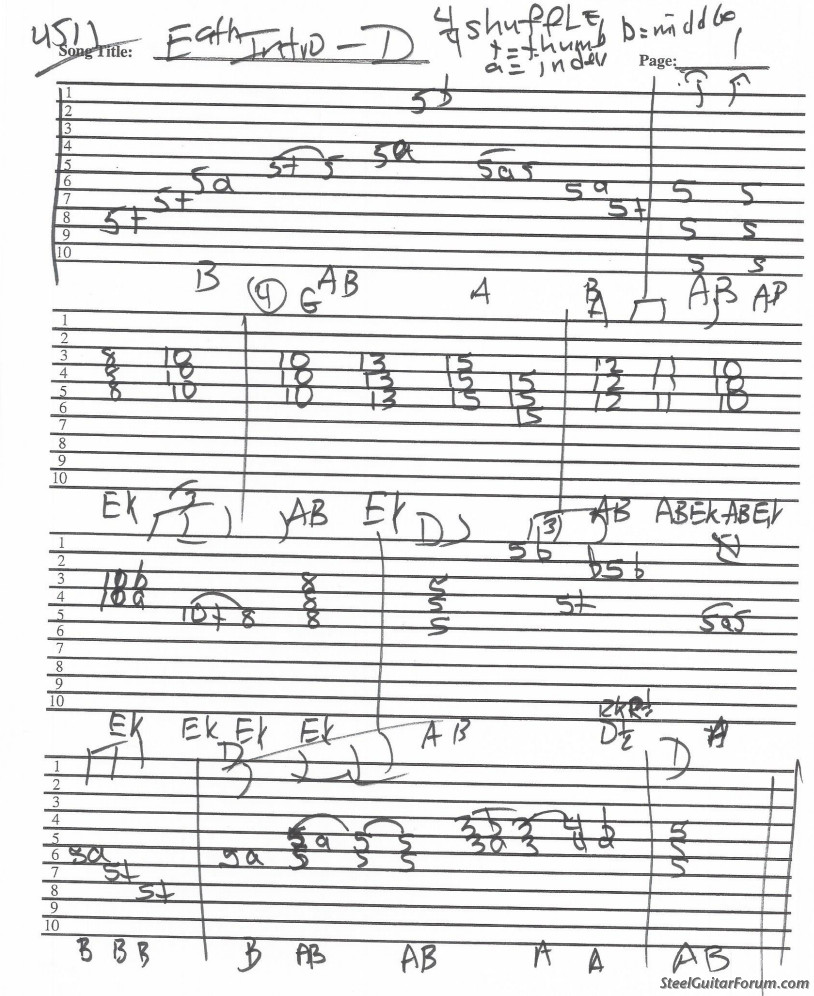 4511 Song Title: Eath Intro - D 4/4 shuffLE b=middle
t=thumb
a=index Page: 1
1 5b
2
3
4 5a
5 5t 5 5a5
6 5a 5a 5 5
7 5t 5t
8 5t 5 5
9
10 5 5
B AB A B AB AB
4 G A
1
2
3 8 10 10 13 15 12 11 10
4 8 10 10 13 15 15 12 11 10
5 8 10 10 13 15 15 12 11 10
6 15
7
8
9
10
Ek 3 AB Ek D 3 AB ABEk ABEk
1 5b
2 b5b
3 10b 8 5
4 10a 8 5 5t
5 10t 8 8 5a5
6 5
7
8
9
10
Ek Ek Ek Ek AB D½ A
1 D D
2
3
4 3b 3 4b 5
5 5a 5 5 3a 3 4a 5
6 5a 5a 5 5 5
7 5t 5
8 5t
9
10
B B B B AB AB A A AB
SteelGuitarForum.com